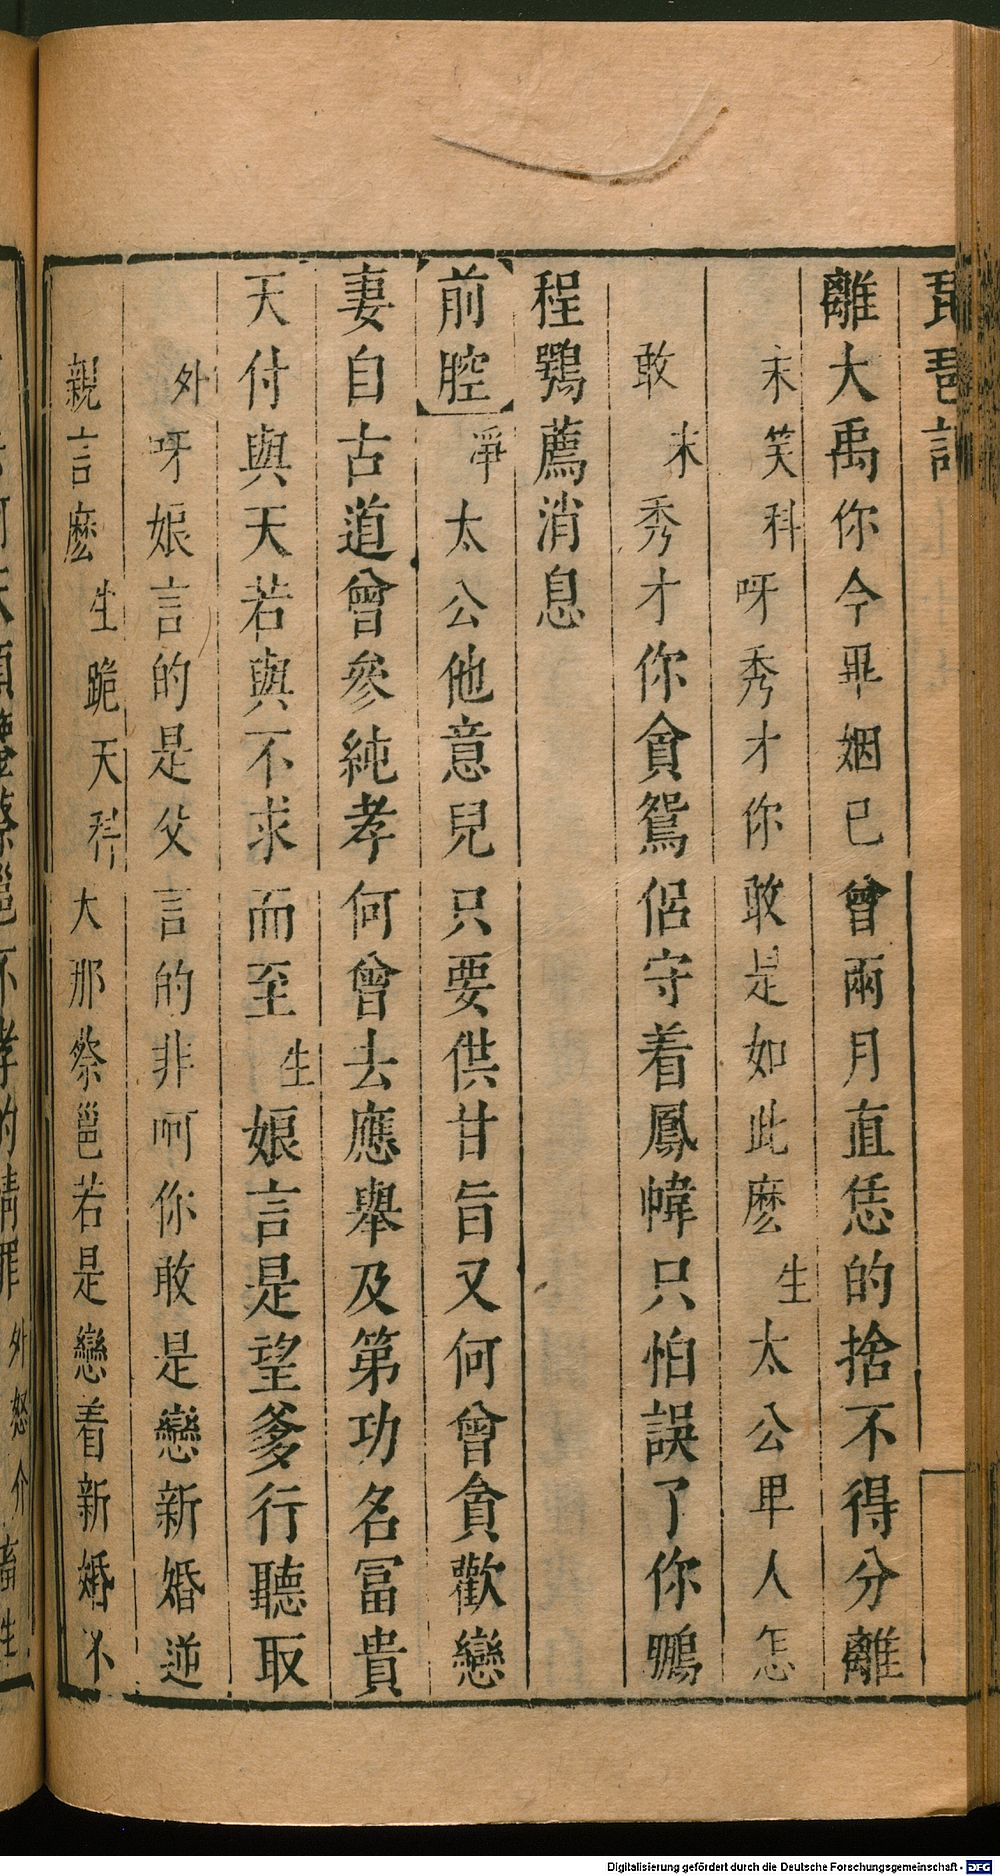 琵琶記
離大禹你今畢姻已曾兩月直恁的捨不得分離
末笑科呀秀才你敢是如此麽生太公卑人怎
敢末秀才你貪鴛侶守着鳳幃只怕誤了你鵬
程鶚薦消息
前腔淨太公他意兒只要供甘旨又何曾貪歡戀
妻自古道曾參純孝何曾去應舉及第功名冨貴
天付與天若與不求而至生娘言是望爹行聽取
外呀娘言的是父言的非呵你敢是戀新婚逆
親言麽生跪天科大那蔡邕若是戀着新婚不
Digitalisierung gefördert durch die Deutsche Forschungsgemeinschaft - DFG